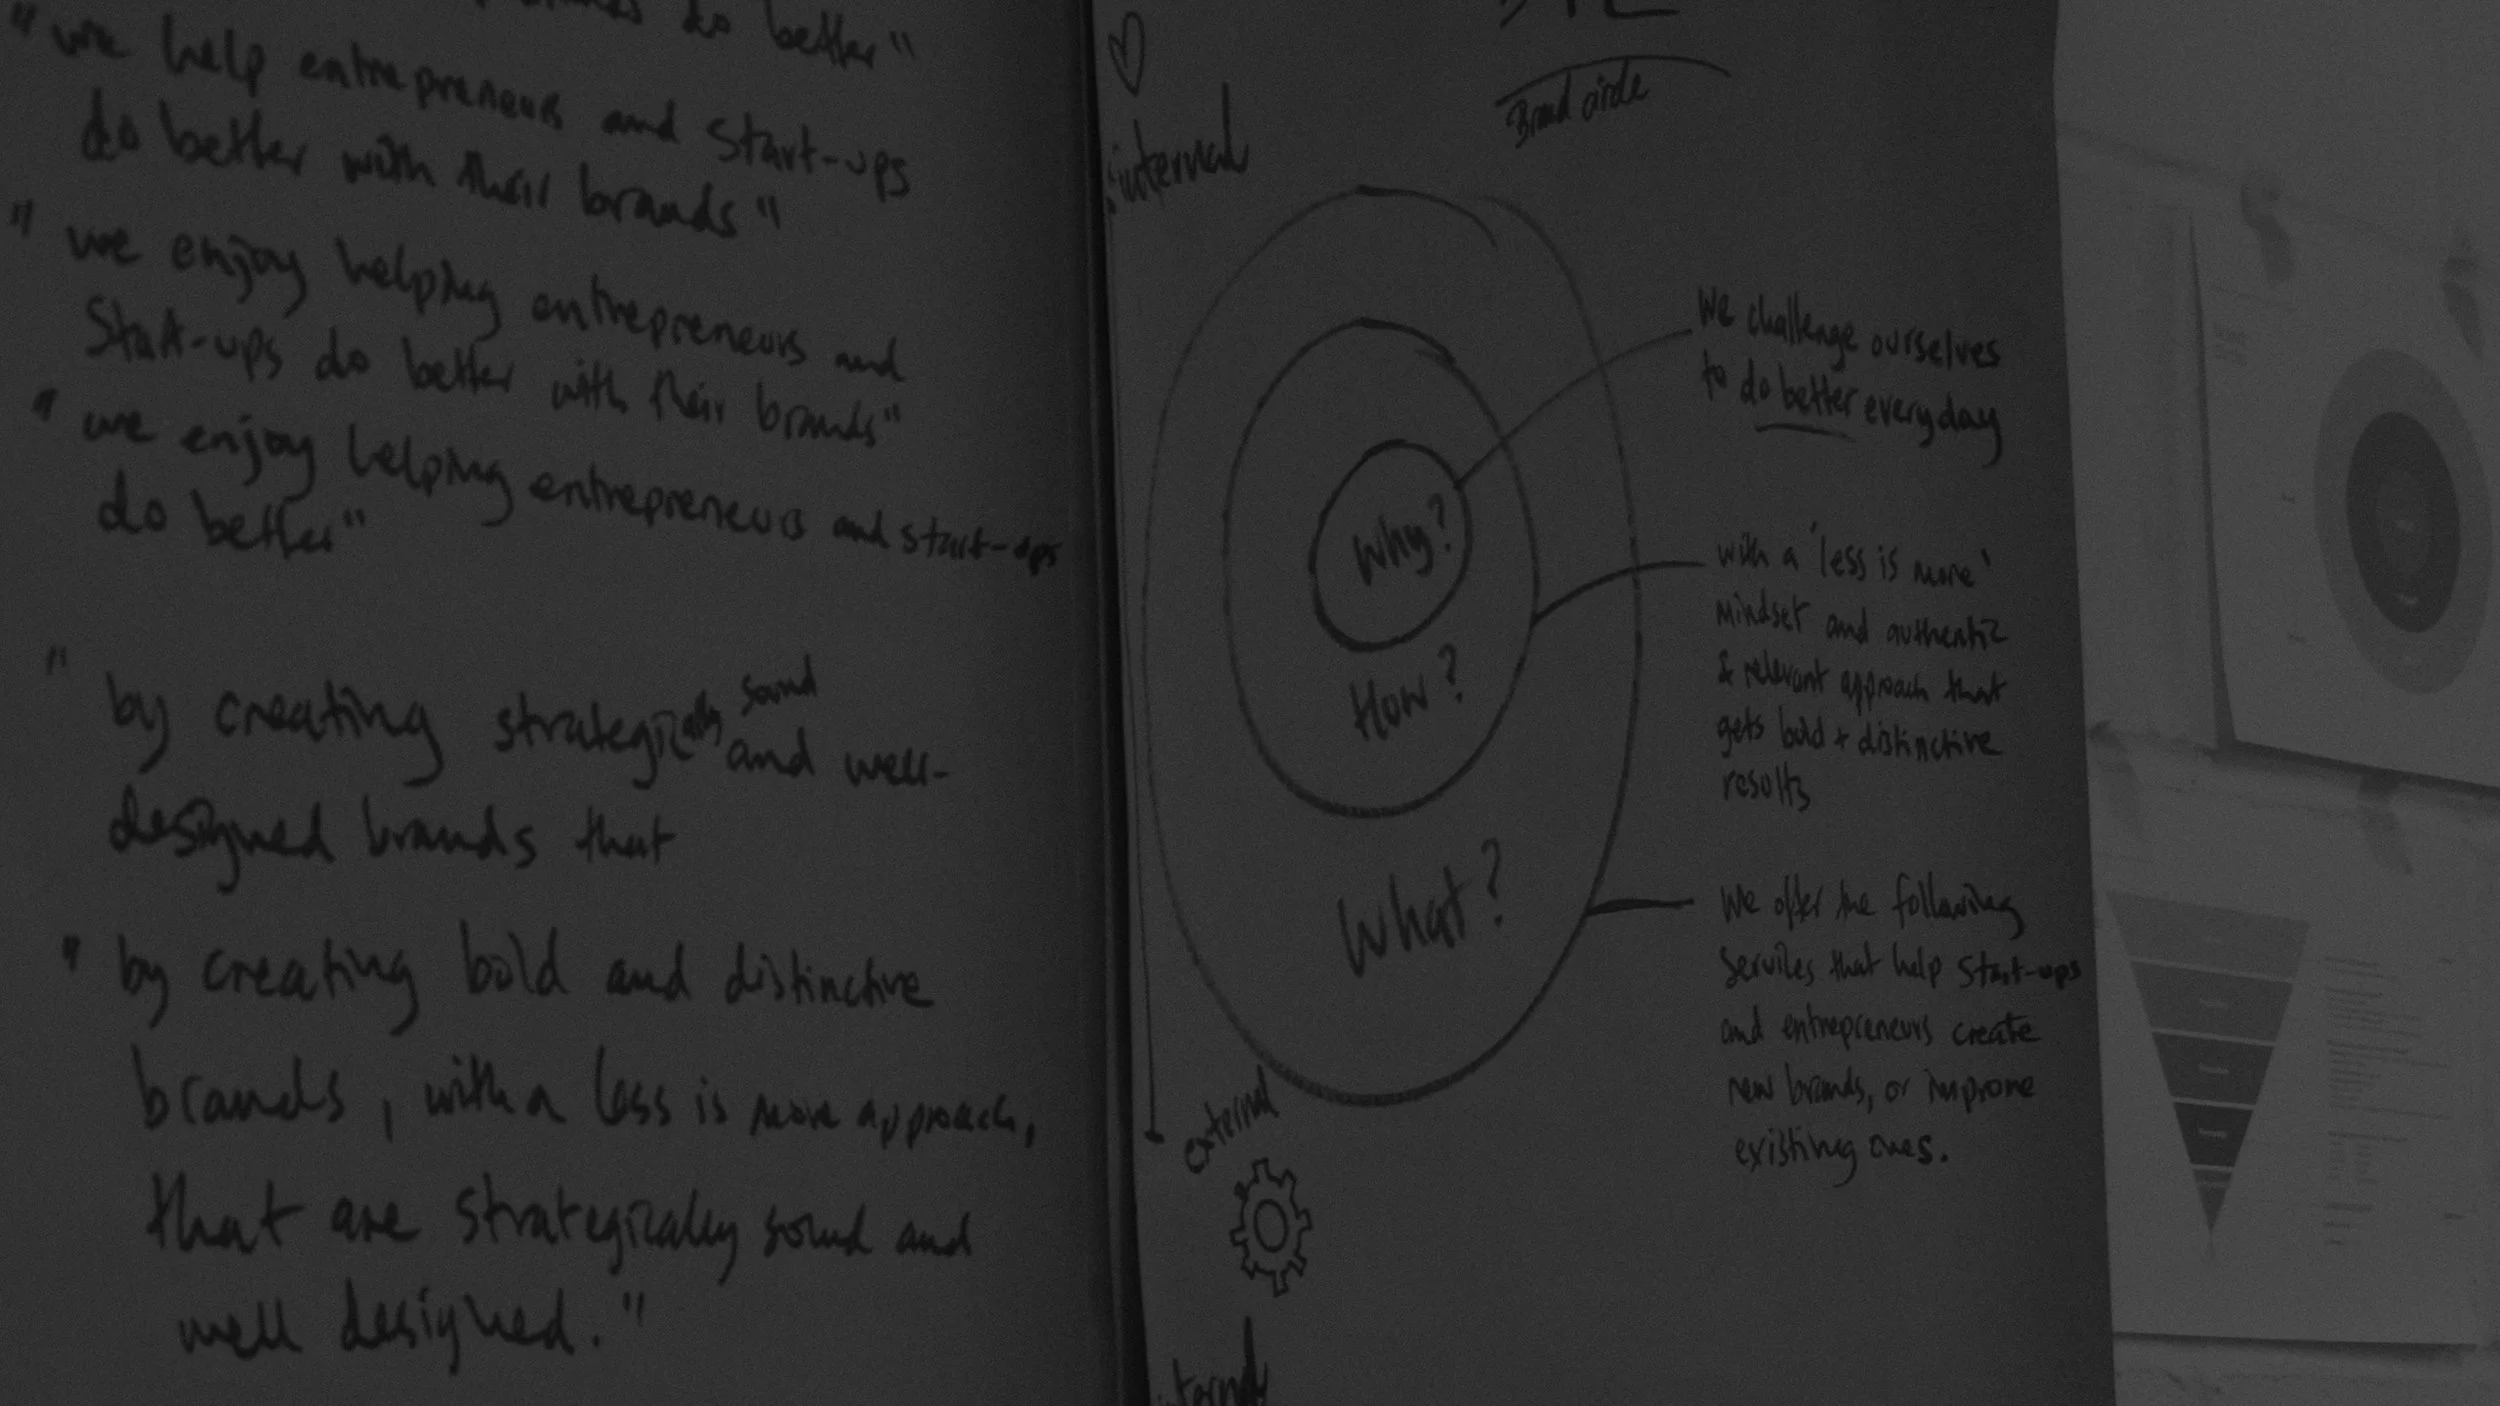 do better"
"we help entrepreneurs and start-ups
do better with their brands"
"we enjoy helping entrepreneurs and
start-ups do better with their brands"
"we enjoy helping entrepreneurs and start-ups
do better"
"by creating strategically sound and well-
designed brands that
"by creating bold and distinctive
brands, with a less is more approach,
that are strategically sound and
well designed."
Brand circle
internal
Why?
How?
What?
external
We challenge ourselves
to do better everyday
with a 'less is more'
mindset and authentic
& relevant approach that
gets bold + distinctive
results
We offer the following
services that help start-ups
and entrepreneurs create
new brands, or improve
existing ones.